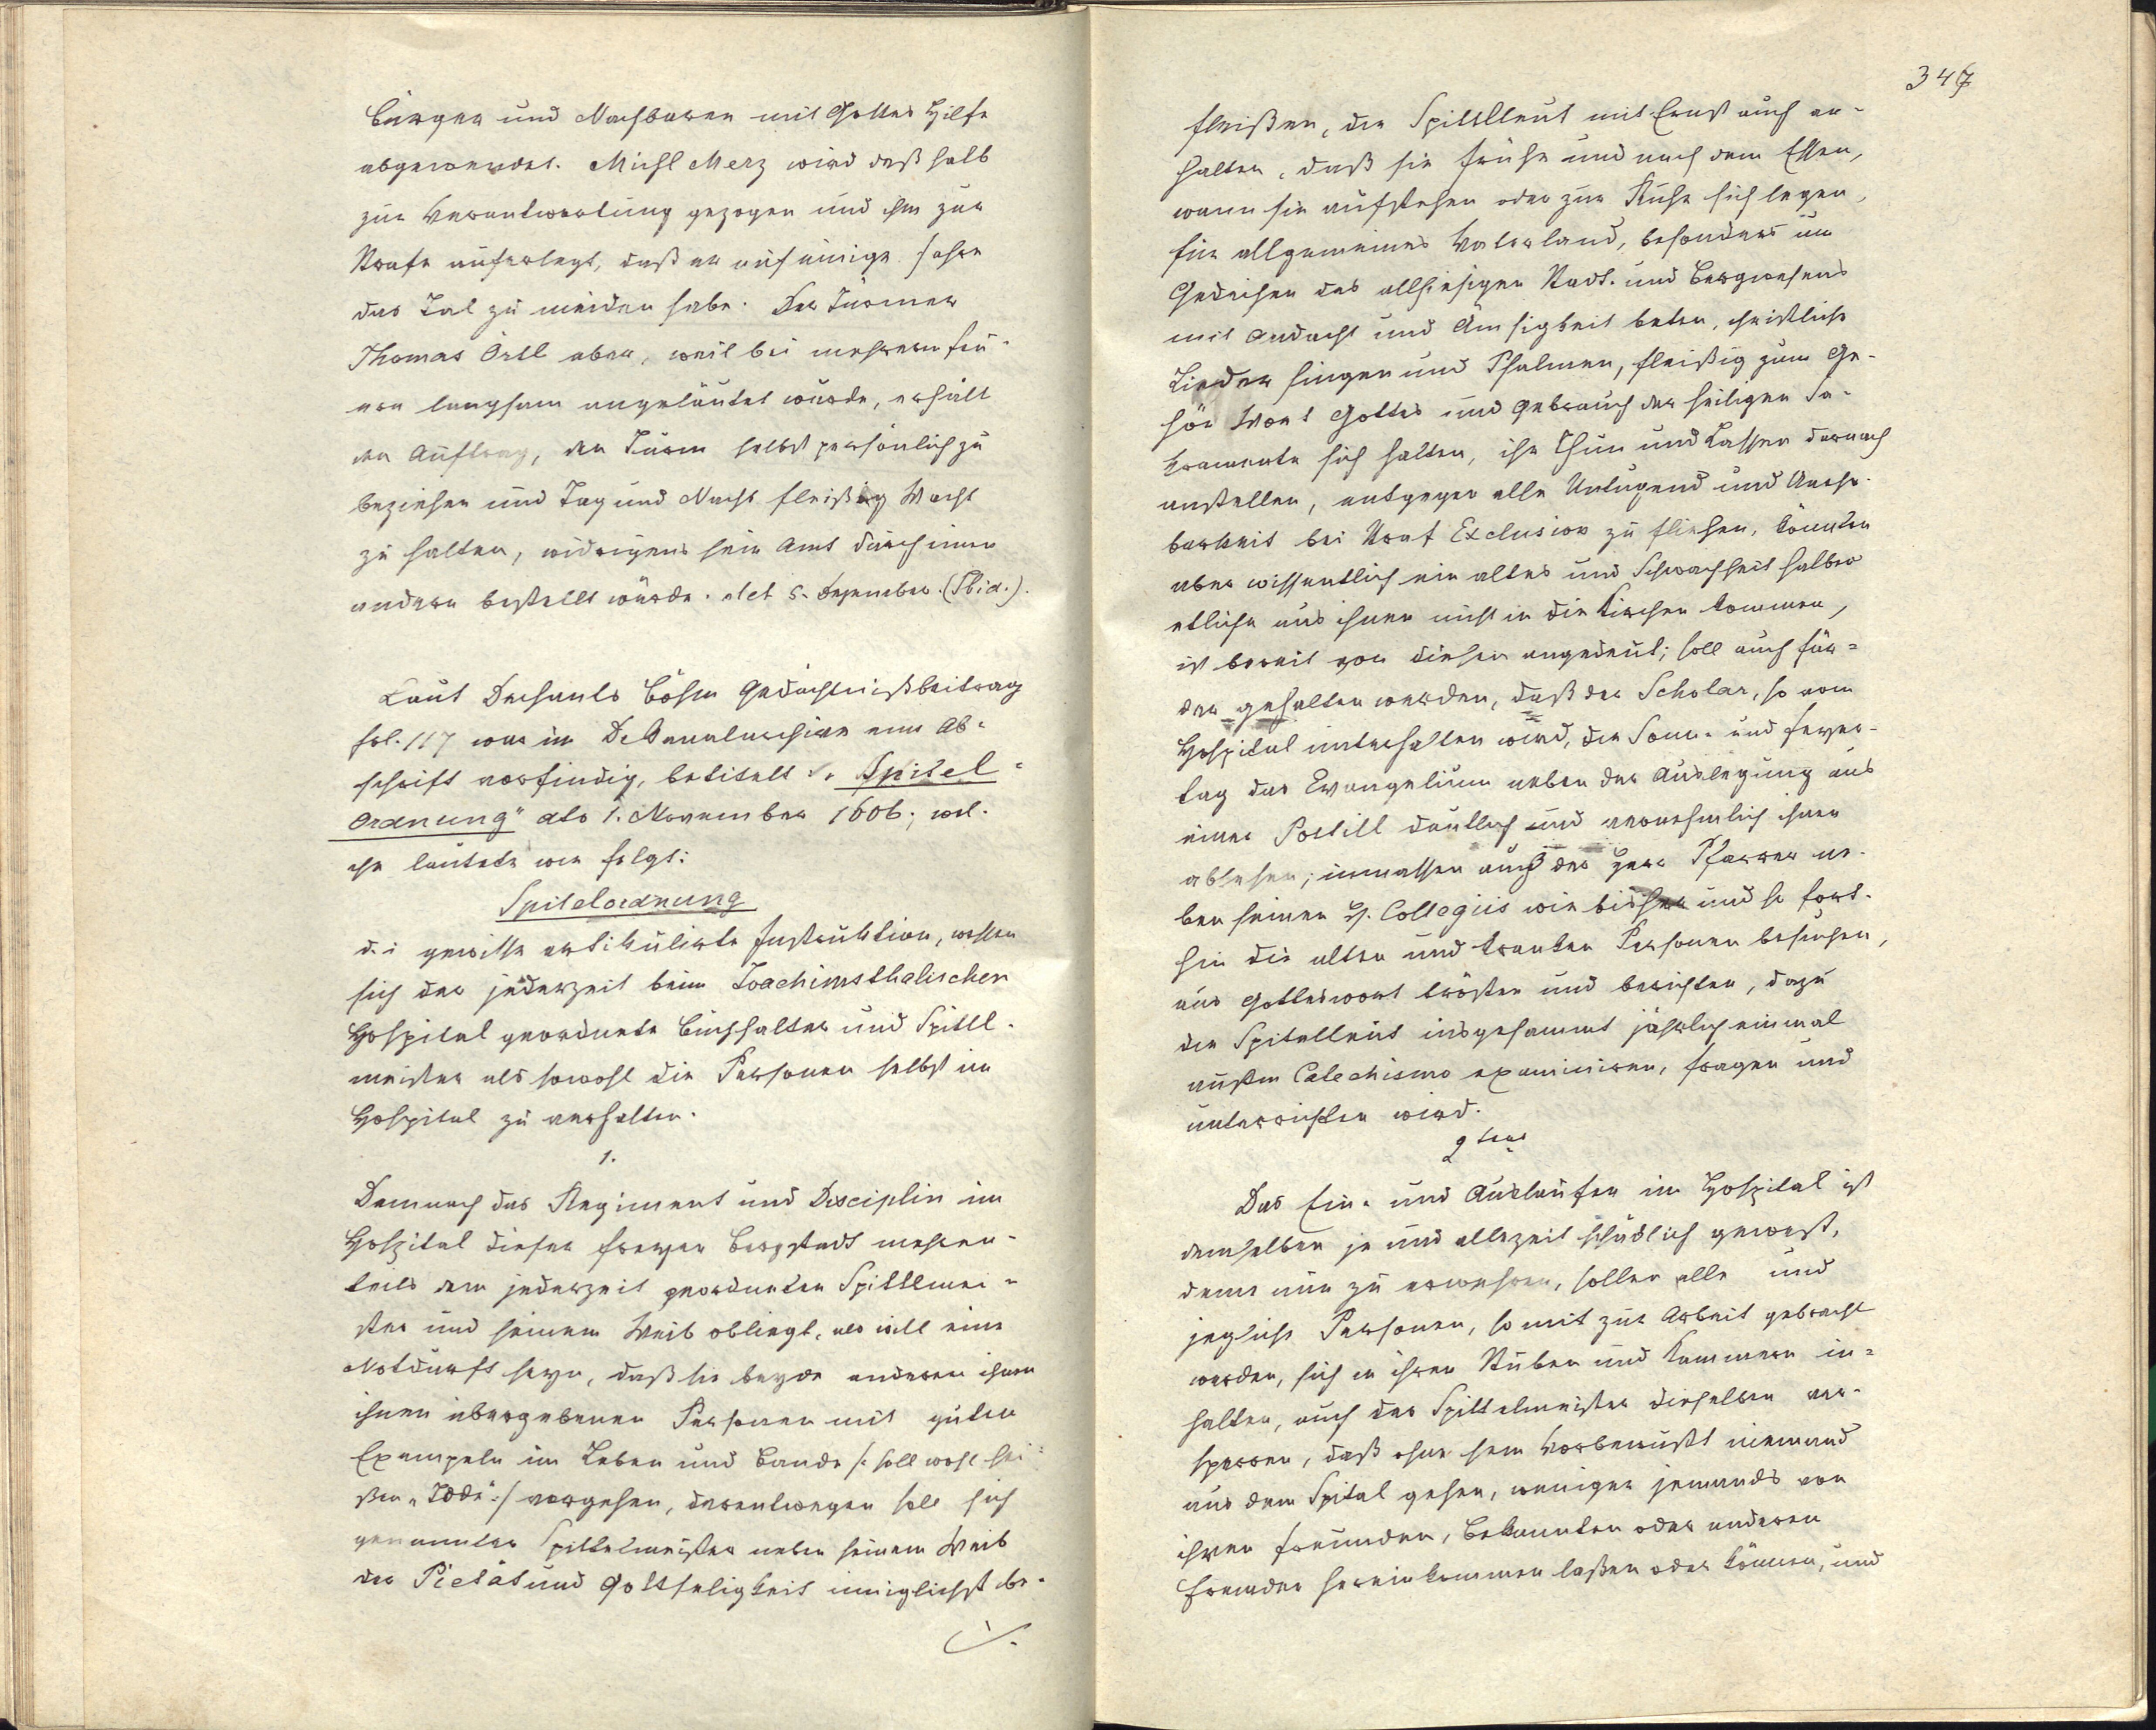 Bürger und Nachbaren mit Gottes Hilfe
abgewendet. Michl Merz wird deßhalb
zur Verantwortung gezogen und ihm zur
Strafe auferlegt, daß er auf einige Jahre
das Tal zu meiden habe. Der Türmer
Thomas Örtl aber, weil bei mehreren Feu-
ern langsam angeläutet wurde, erhält
den Auftrag, den Turm selbst persönlich zu
beziehen und Tag und Nacht fleißig Wacht
zu halten, widrigens sein Amt durch einen
andern bestellt würde. Act 5. Dezember. (Ibid.).
Laut Dechants Böhm Gedächtnißbeitrag
fol. 117 war im Dekanalarchive eine Ab-
schrift vorfindig, betitelt: „Spitel-
Ordnung" dto 1. November 1606; wel-
che lautete wie folgt:
Spitelordnung
d. i gewisse artikulirte Instruktion, wessen
sich der jederzeit beim Joachimsthalischen
Hospital geordnete Buchhalter und Spittl-
meister als sowohl die Personen selbst im
Hospital zu verhalten.
1.
Demnach das Regiment und Disciplin im
Hospital dieser freyen Bergstadt mehren-
teils dem jederzeit geordneten Spittlmei-
ster und seinem Weib obliegt, als will eine
Notdurft seyn, daß sie beyde anderen ihnen
ihnen übergebenen Personen mit guten
Exempeln im Leben und Bande /: soll wohl hei-
ßen „Tode" :/ vorgehen, derentwegen soll sich
genannter Spittelmeister neben seinem Weib
der Pietät und Gottseligkeit inniglichst be-
./.
347
fleißen, die Spittlleut mit Ernst auch an-
halten, daß sie frühe und nach dem Essen,
wann sie aufstehen oder zur Ruhe sich legen,
für allgemeines Vaterland, besonders um
Gedeihen des allhiesigen Stadt- und Bergwesens
mit Andacht und Ämsigkeit beten, christliche
Lieder singen und Psalmen, fleißig zum Ge-
hör Wort Gottes und Gebrauch der heiligen Sa-
kramente sich halten, ihr Thun und Lassen darnach
anstellen, entgegen alle Untugend und Unehr-
barkeit bei Straf Exclusion zu fliehen, könnten
aber wissentlich ein altes und Schwachheit halber
etliche aus ihnen nicht in die Kirchen kommen,
ist bereit von diesen angedeut; soll auch für-
der gehalten werden, daß der Scholar, so vom
Hospital unterhalten wird, die Sonn- und Feyer-
tag das Evangelium neben der Auslegung aus
einer Postill deutlich und vernehmlich ihnen
ablesen; inmassen auch der Herr Pfarrer ne-
ben seinen H. Collegiis wie bisher und so fort-
hin die alten und kranken Personen besuchen,
aus Gotteswort trösten und berichten, dazu
die Spitalleut insgesammt jährlich einmal
außm Catechismo examiniren, fragen und
unterrichten wird.
2 tens
Das Ein- und Auslaufen im Hospital ist
demselben je und allezeit schädlich gewest,
deme nun zu erwehren, sollen alle und
jegliche Personen, so mit zur Arbeit gebracht
werden, sich in ihren Stuben und Kammern in-
halten, auch der Spittelmeister dieselben ver-
sperren, daß ohne sein Vorbewußt niemand
aus dem Spital gehen, weniger jemands von
ihren Freunden, Bekannten oder anderen
Fremden hereinkommen laßen oder können, und